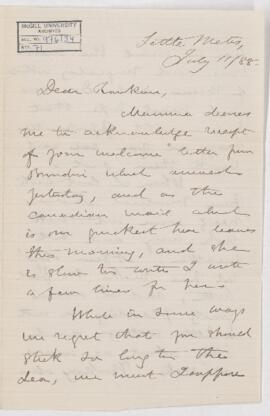 McGILL UNIVERSITY
ARCHIVES
ACC. NO. 976/34
REF. 71
Little Metis,
July 11/88.
Dear Rankine,
Mamma desires
me to acknowledge receipt
of your welcome letter from
which arrived
yesterday, and as the
Canadian mail which
is our quickest here leaves
this morning, and she
is slow to write I write
a few lines for her.
While in some ways
we regret that you should
stick so long to the
sea, we must I suppose